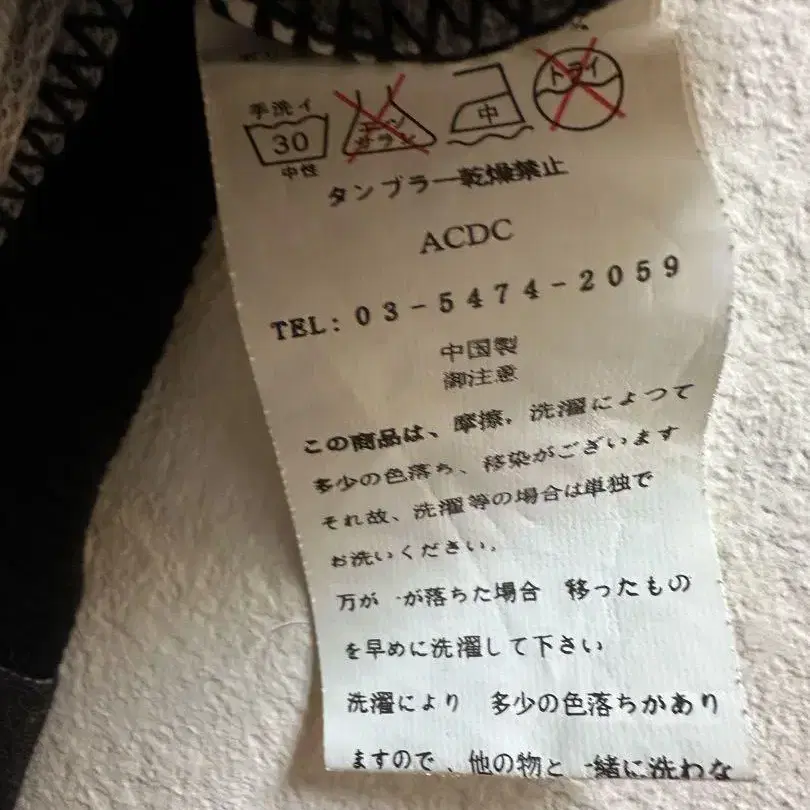 手洗イ
30
中性
エンソサラシ
中
ドライ
タンブラー乾燥禁止
ACDC
TEL: 03-5474-2059
中国製
御注意
この商品は、摩擦，洗濯によつて
多少の色落ち、移染がございます
それ故、洗濯等の場合は単独で
お洗いください。
万が一が落ちた場合 移ったもの
を早めに洗濯して下さい
洗濯により 多少の色落ちがあり
ますので、他の物と一緒に洗わな